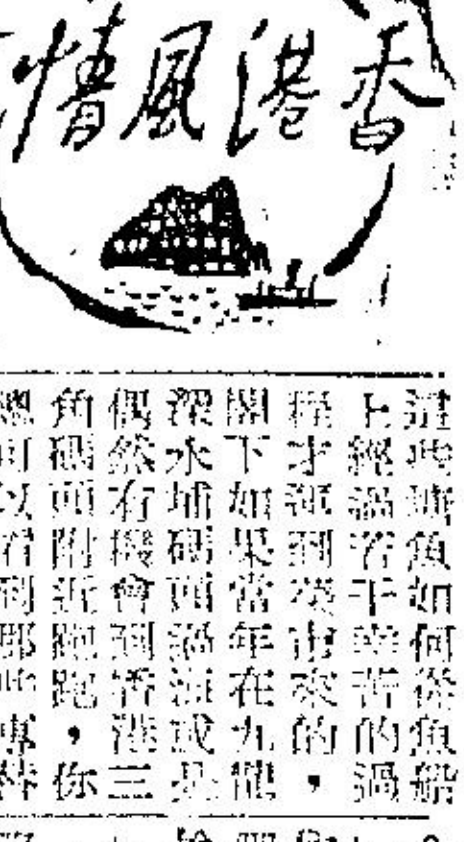 香港風情
魚如何從魚船
上經過若干辛苦的過
程才運到菜市來的，
閣下如果當年在九龍
深水埔碼頭過海或是
偶然有機會到香港三
角碼頭附近跑跑，你
總可以看到那些專替